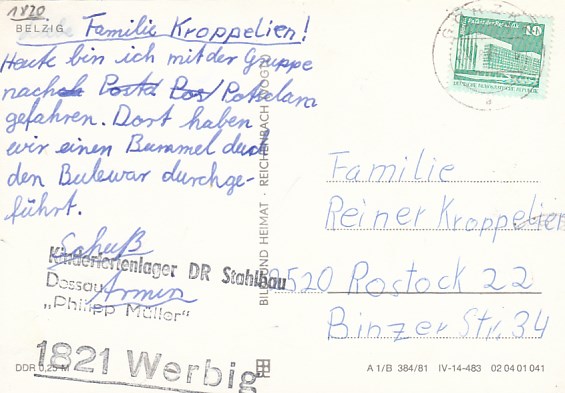 1820
BELZIG
Familie Kroppelien!
Heute bin ich mit der Gruppe
nach Potsdam
gefahren. Dort haben
wir einen Bummel durch
den Bulewar durchge-
führt.
Schuß
Armin
Kinderferienlager DR Stahlbau
Dessau
„Philipp Müller"
1821 Werbig
DDR 0,25 M
BILD UND HEIMAT · REICHENBACH (VOGTL)
20
Familie
Reiner Kroppelien
2520 Rostock 22
Binzer Str. 34
A 1/B 384/81 IV-14-483 02 04 01 041